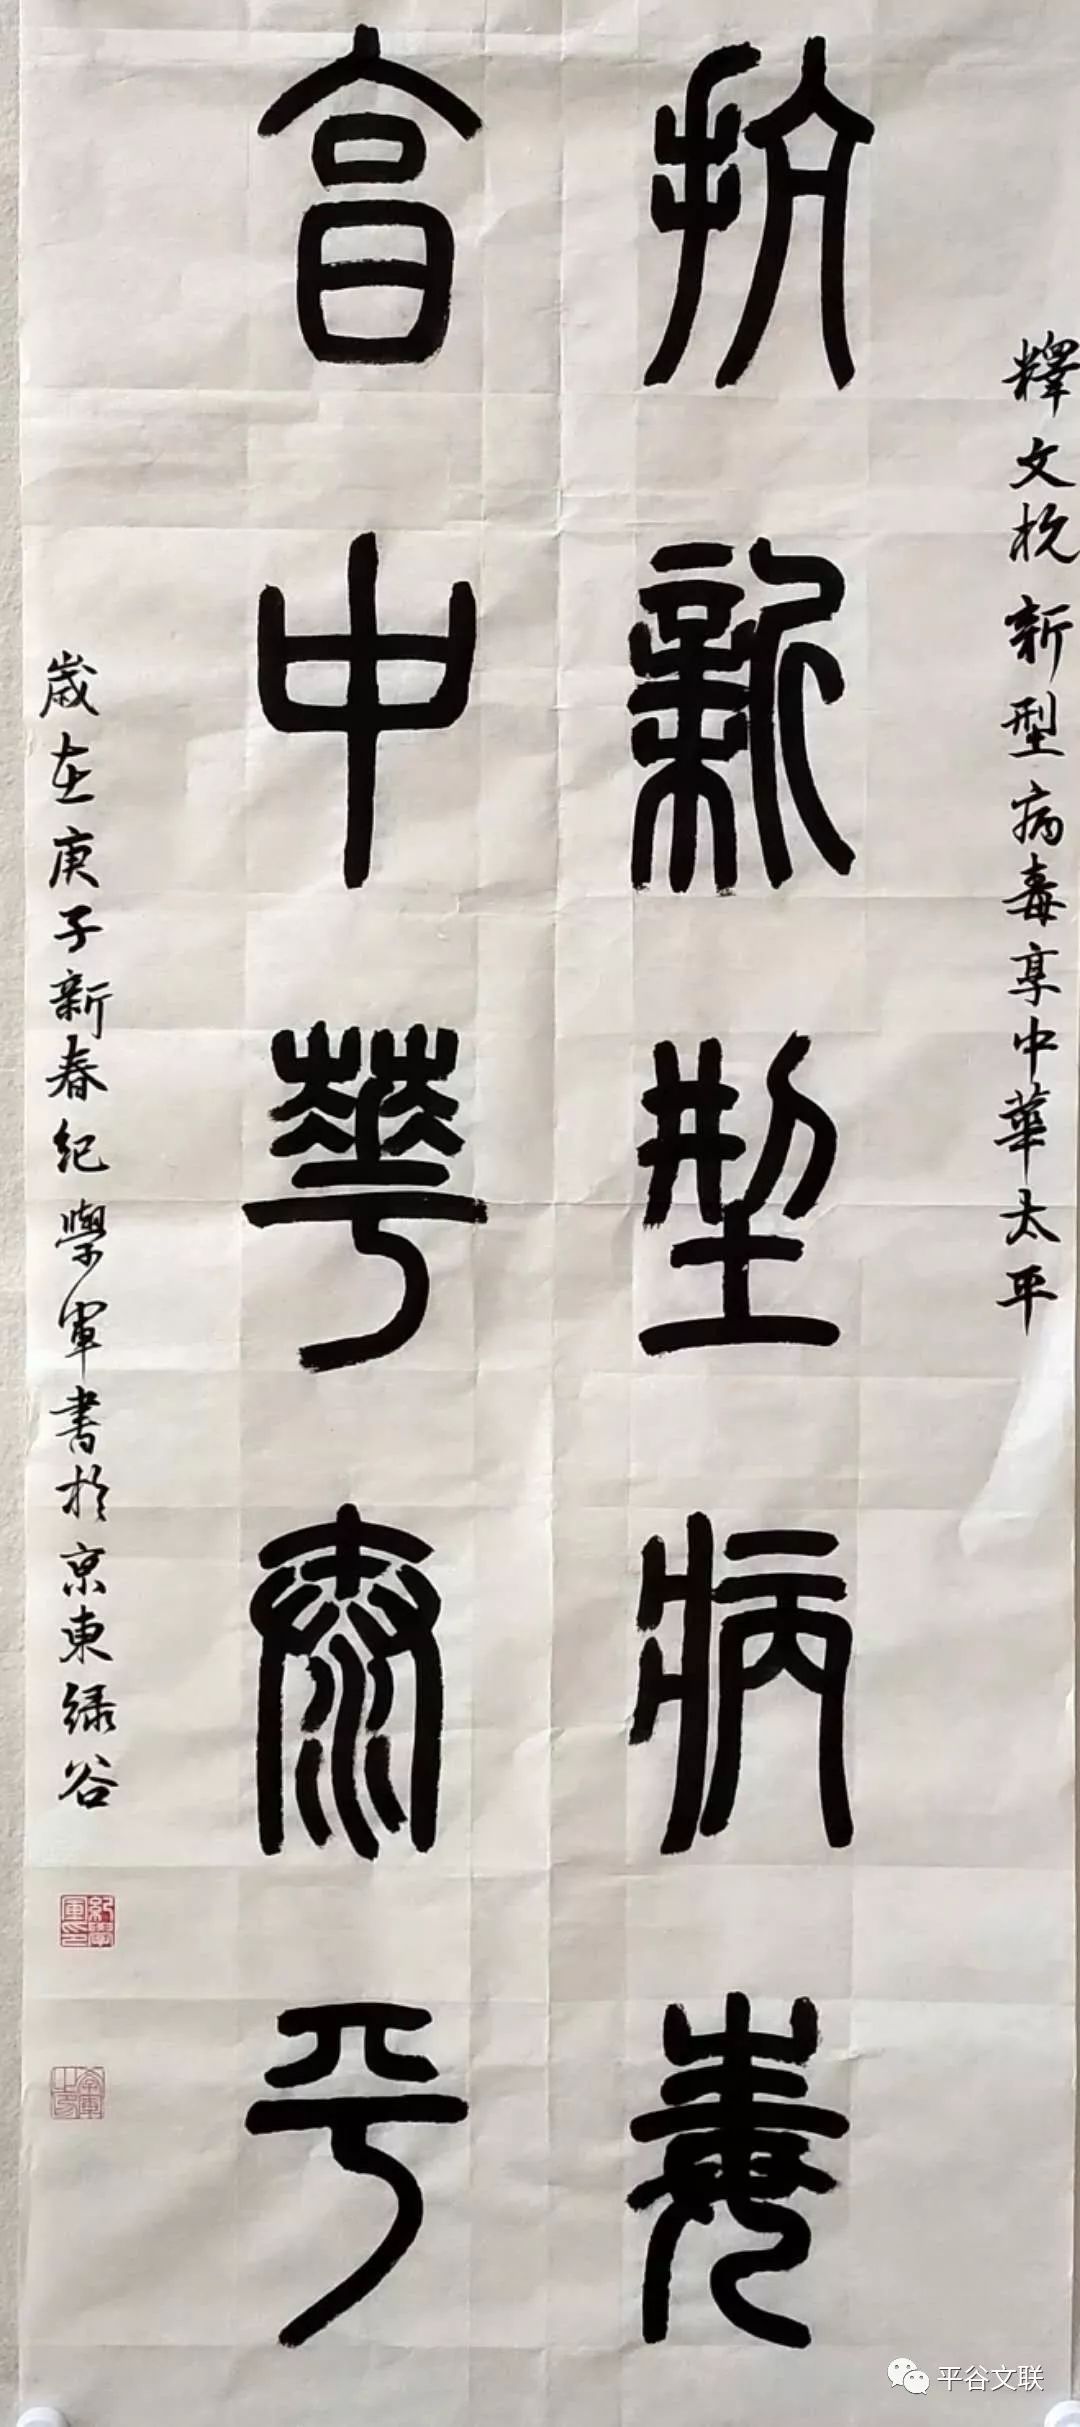 釋文抗新型病毒享中華太平
抗新型病毒
享中華泰平
歲在庚子新春紀學軍書於京東绿谷
紀學軍印
平谷文联